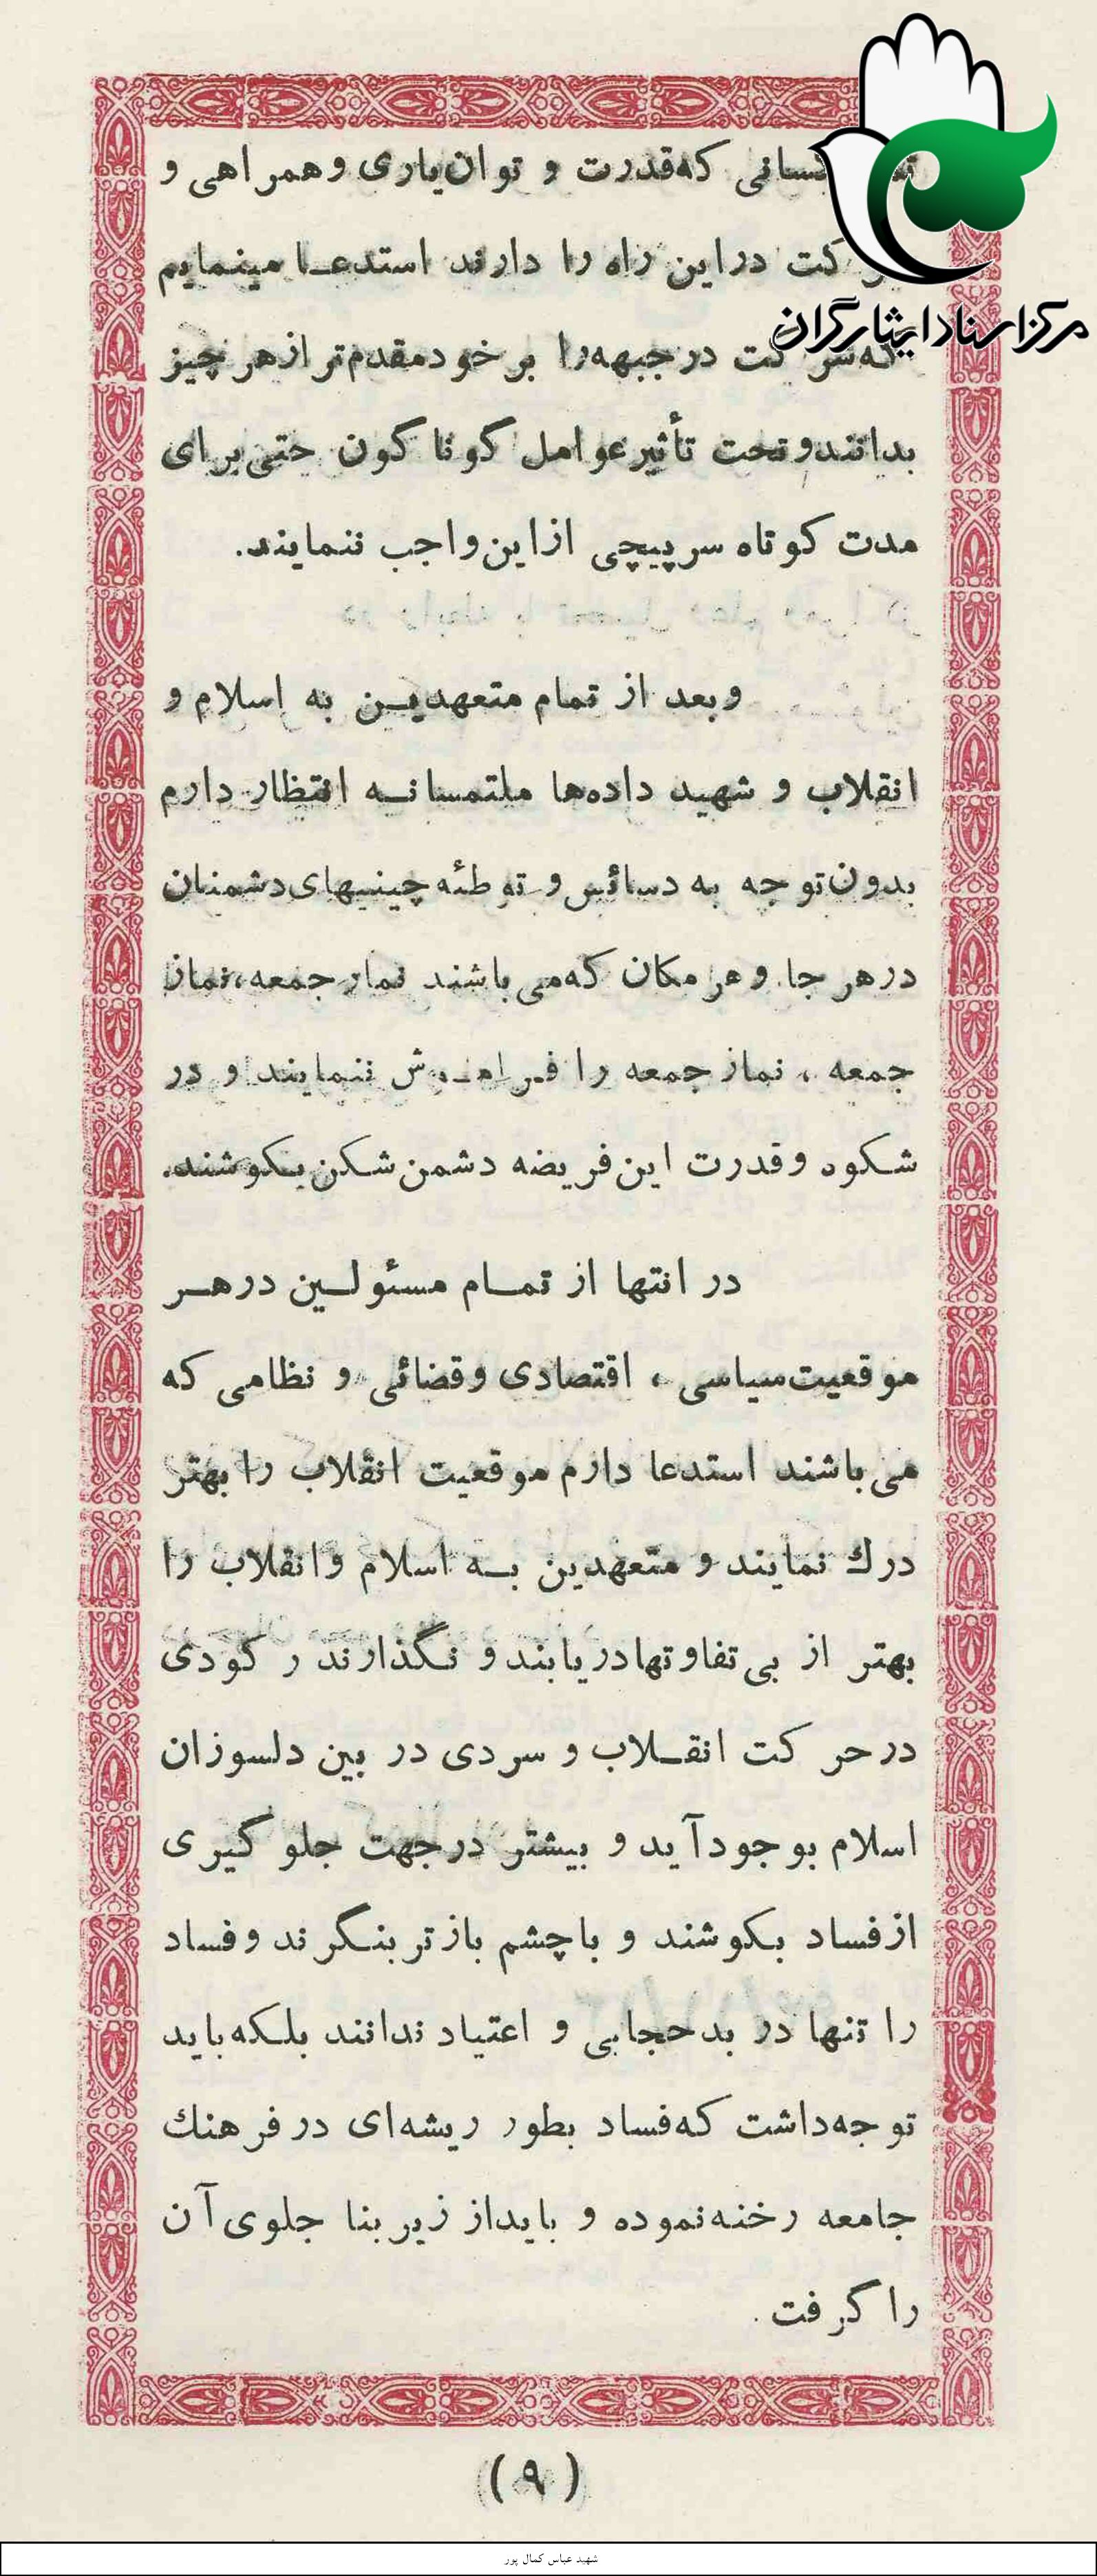 کسانی که قدرت و توان یاری و همراهی و
کت در این راه را دارند استدعا مینمایم
مرکز اسناد ایثارگران
کت در جبهه را بر خود مقدم تر از هر چیز
بدانند و تحت تأثیر عوامل گوناگون حتی برای
مدت کوتاه سرپیچی از این واجب ننمایند.
و بعد از تمام متعهدین به اسلام و
انقلاب و شهید داده‌ها ملتمسانه انتظار دارم
بدون توجه به دسائس و توطئه چینیهای دشمنان
در هر جا و هر مکان که می باشند نماز جمعه، نماز
جمعه ، نماز جمعه را فراموش ننمایند و در
شکوه و قدرت این فریضه دشمن شکن بکوشند.
در انتها از تمام مسئولین در هر
موقعیت سیاسی ، اقتصادی و قضائی و نظامی که
می باشند استدعا دارم موقعیت انقلاب را بهتر
درك نمایند و متعهدین به اسلام و انقلاب را
بهتر از بی تفاوتها دریابند و نگذارند رکودی
در حرکت انقلاب و سردی در بین دلسوزان
اسلام بوجود آید و بیشتر در جهت جلوگیری
از فساد بکوشند و با چشم بازتر بنگرند و فساد
را تنها در بدحجابی و اعتیاد ندانند بلکه باید
توجه داشت که فساد بطور ریشه‌ای در فرهنك
جامعه رخنه نموده و باید از زیر بنا جلوی آن
را گرفت .
(۹)
شهید عباس کمال پور